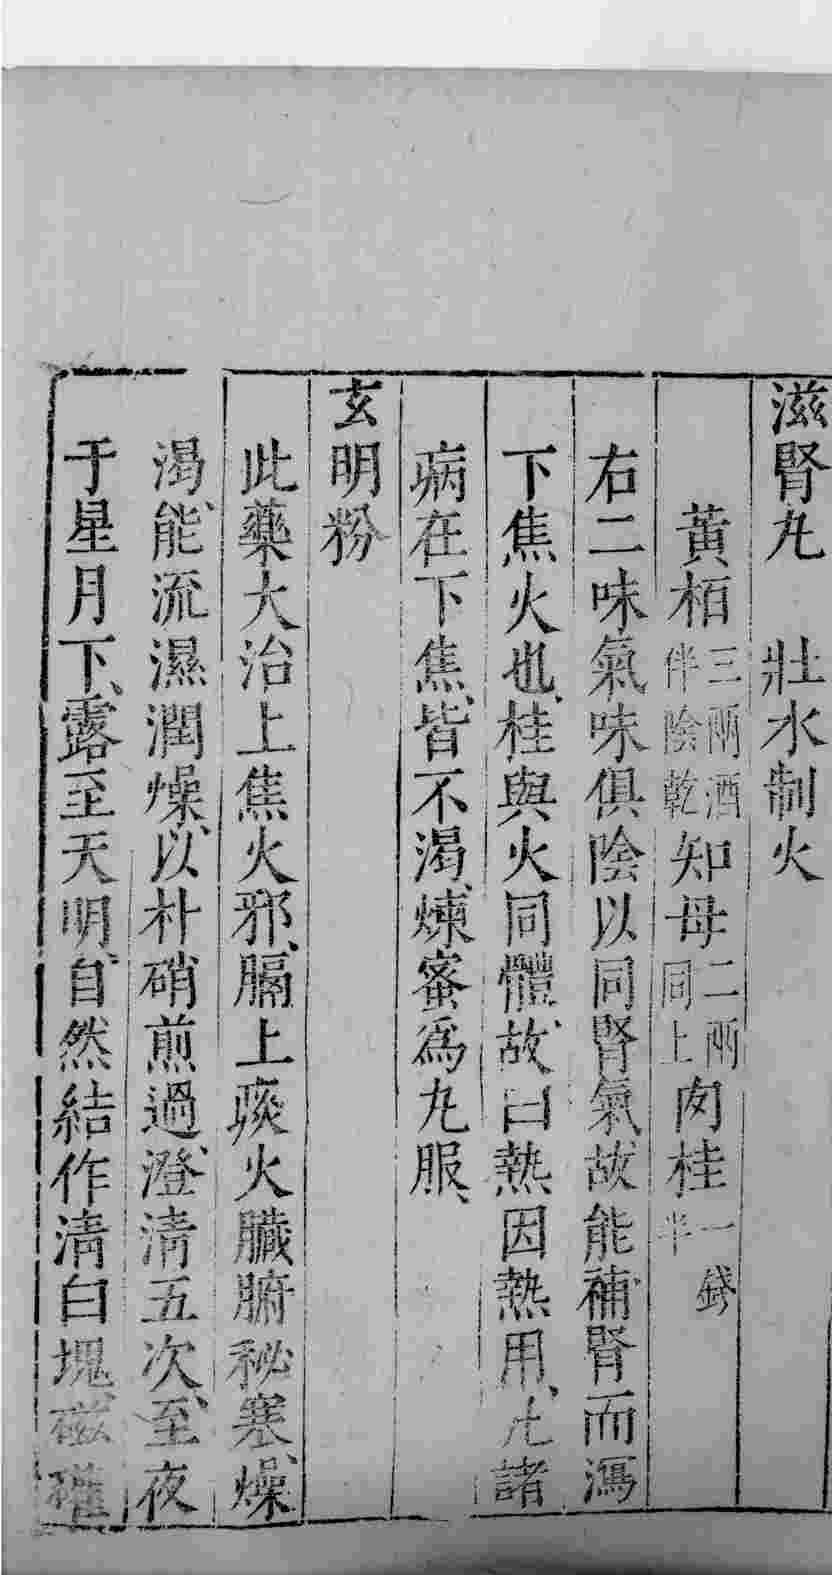 滋腎丸　壯水制火
黃栢三兩酒伴陰乾知母二兩同上肉桂一錢半
右二味氣味俱陰以同腎氣故能補腎而瀉
下焦火也、桂與火同體、故曰熱因熱用、凡諸
病在下焦、皆不渴、煉蜜爲丸服、
玄明粉
此藥大治上焦火邪、膈上痰火臟腑秘塞、燥
渴、能流濕潤燥、以朴硝煎過、澄清五次、至夜
于星月下、露至天明、自然結作清白塊、磁礶